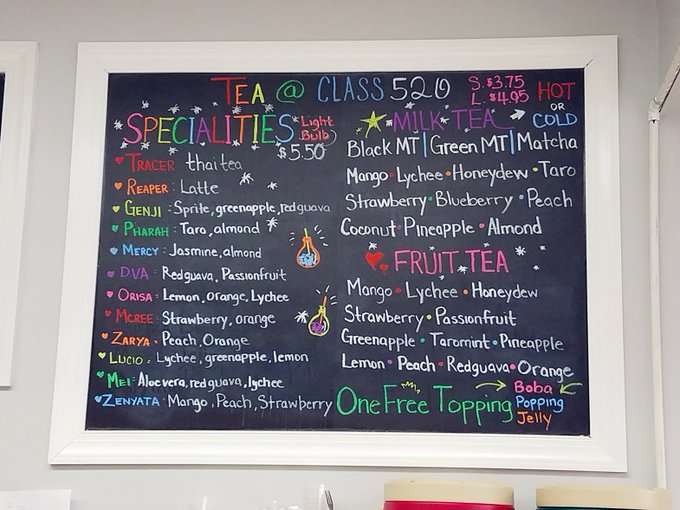 TEA @ CLASS 520
S. $3.75
L. $4.95
HOT
OR
COLD
SPECIALITIES
Light
Bulb
$5.50
TRACER thai tea
REAPER: Latte
GENJI: Sprite, greenapple, red guava
PHARAH: Taro, almond
MERCY: Jasmine, almond
D.VA: Redguava, Passionfruit
ORISA: Lemon, orange, Lychee
MCREE: Strawberry, orange
ZARYA: Peach, Orange
LUCIO: Lychee, greenapple, lemon
MEI: Aloe vera, red guava, lychee
ZENYATA: Mango, Peach, Strawberry
MILK TEA
Black MT | Green MT | Matcha
Mango • Lychee • Honeydew • Taro
Strawberry • Blueberry • Peach
Coconut • Pineapple • Almond
FRUIT TEA
Mango • Lychee • Honeydew
Strawberry • Passionfruit
Greenapple • Taromint • Pineapple
Lemon • Peach • Redguava • Orange
One Free Topping
Boba
Popping
Jelly